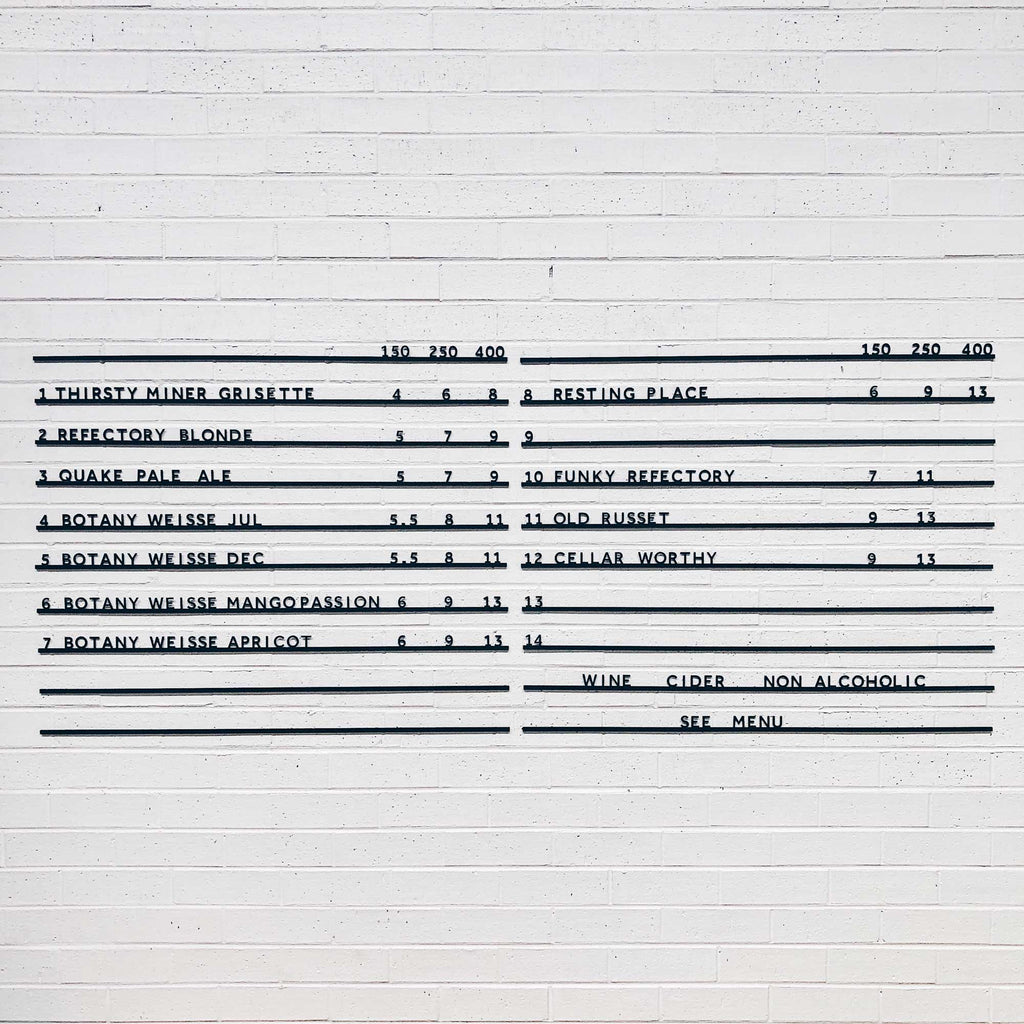 150 250 400
1 THIRSTY MINER GRISETTE 4 6 8
2 REFECTORY BLONDE 5 7 9
3 QUAKE PALE ALE 5 7 9
4 BOTANY WEISSE JUL 5.5 8 11
5 BOTANY WEISSE DEC 5.5 8 11
6 BOTANY WEISSE MANGOPASSION 6 9 13
7 BOTANY WEISSE APRICOT 6 9 13
150 250 400
8 RESTING PLACE 6 9 13
9
10 FUNKY REFECTORY 7 11
11 OLD RUSSET 9 13
12 CELLAR WORTHY 9 13
13
14
WINE CIDER NON ALCOHOLIC
SEE MENU